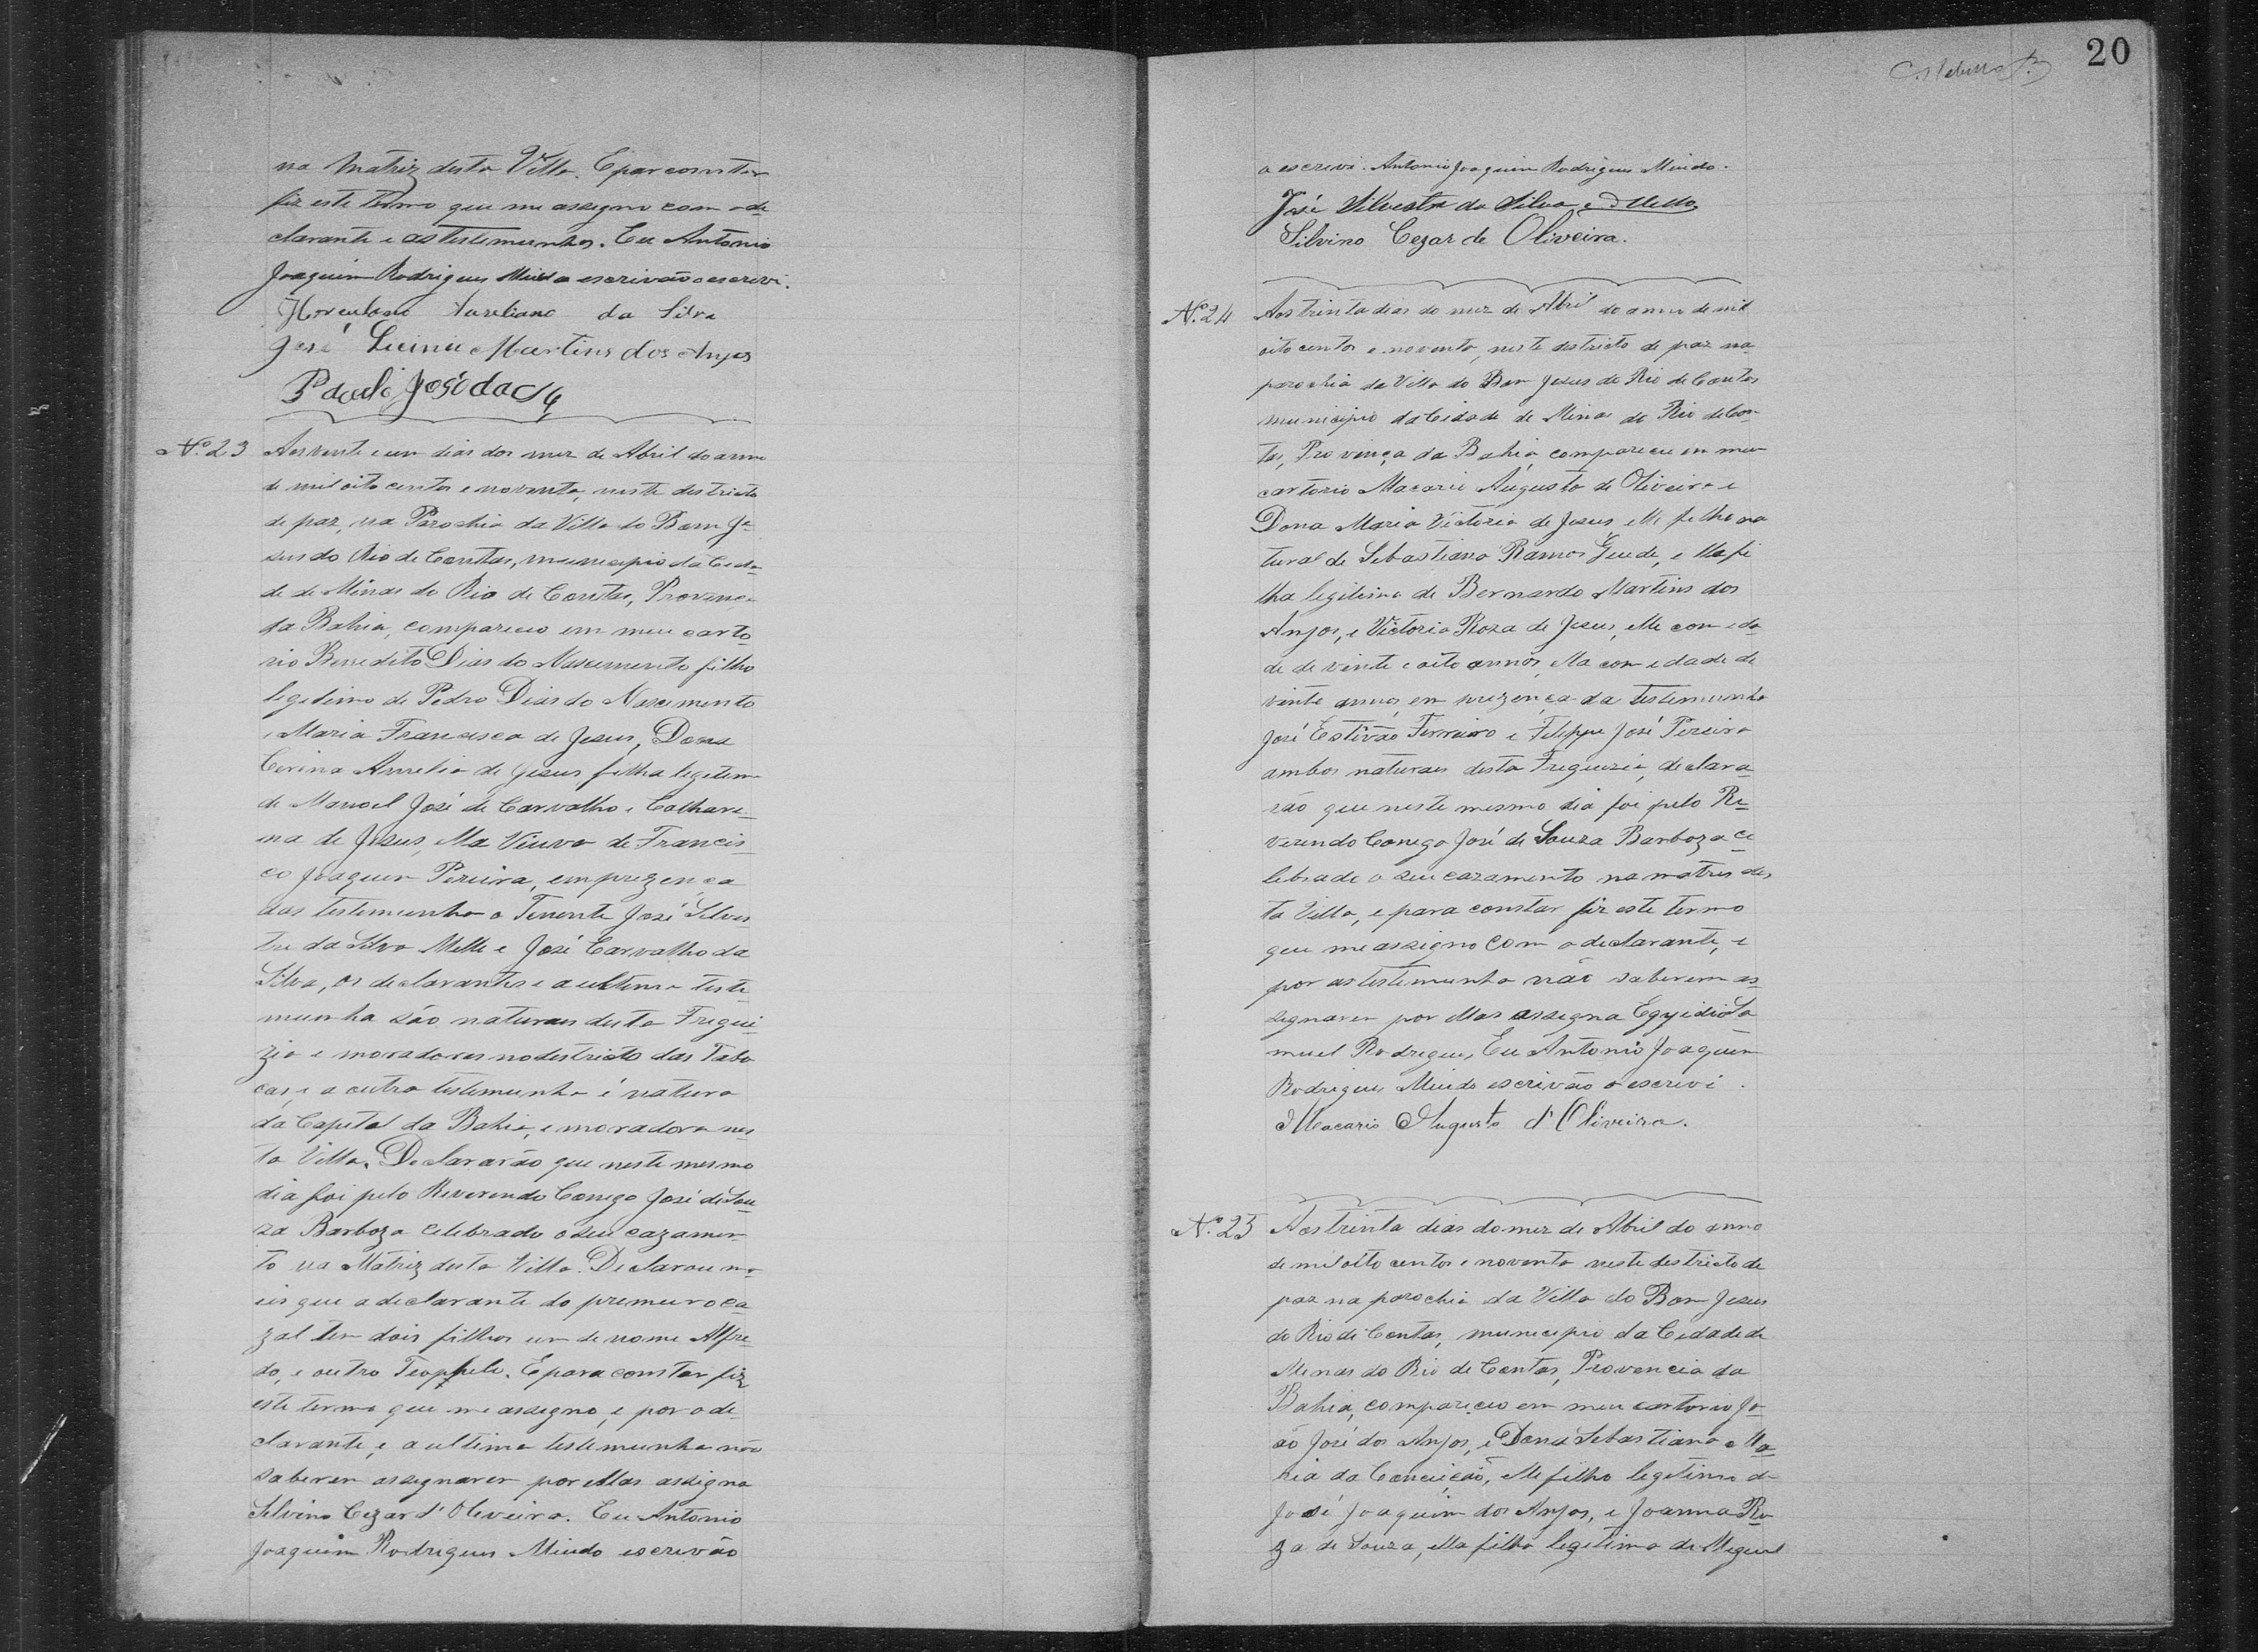 na Matriz desta Villa. E par constar
fiz este termo que me assigno com o de
clarante e as testemunhas. Eu Antonio
Joaquim Rodrigues Miudo escrivão o escrevi.
Herculano Aureliano da Silva
José Licinio Martins dos Anjos
Paulo José da
Nº. 23 Aos vente e um dias dos mez de Abril do anno
de mil oito centos e noventa, neste destricto
de paz, na Parochia da Villa do Bom Je-
sus do Rio de Contas, municipio da Ceda-
de de Minas do Rio de Contas, Provinc
da Bahia, compareceu em meu carto
rio Benedito Dias do Nascimento filho
legetimo de Pedro Dias do Nascimento
e Maria Francisca de Jesus, Dona
Corina Amelia de Jesus filha legetima
de Manoel José de Carvalho e Cathare-
na de Jesus, Ella Viuva de Francis-
co Joaquim Pereira, em prezença
das testemunha o Tenente José Silves
tre da Silva Mello e José Carvalho da
Silva, os declarantes e a ultima teste
munha são naturaes desta Fregui
zia e moradores no destricto das Tabo
cas, e a outra testemunha é natura
da Capital da Bahia, e moradora nes
ta Villa. Declararão que neste mesmo
dia foi pelo Reverendo Conego José de Sou
za Barboza celebrado o seu cazamen
to na Matriz desta Villa. Declarou ma
is que a declarante do premeiro ca
zal tem dois filhos um de nome Alfre-
do, e outro Teophelo. E para constar fiz
este termo que me assigno, e por o de
clarante, e a ultima testemunha não
saberem assignarem por ellas assigna
Silvino Cezar d'Oliveira. Eu Antonio
Joaquim Rodrigues Miudo escrivão
20
o escrevi. Antonio Joaquim Rodrigues Miudo.
José Silvestre da Silva e Mello
Silvino Cezar de Oliveira.
Nº. 24 Aos trinta dias do mez de Abril do anno de mil
oito centos e noventa, neste destricto de paz na
parochia da Villa do Bom Jesus do Rio de Contas
municipio da Cidade de Minas do Rio de Con-
tas, Provinça da Bahia, compareceu em meu
cartorio Macario Augusto de Oliveira e
Dona Maria Victoria de Jesus, elle filho na
tural de Sebastiana Ramos Guede, ella fi
lha legitima de Bernardo Martins dos
Anjos, e Victoria Roza de Jesus, elle com eda
de de vinte e oito annos, ella com edade de
vinte annos, em prezença da testemunha
José Estivão Ferreiro e Felippe José Pereira
ambos naturaes desta Freguezia, declara-
rão que neste mesmo dia foi pelo Re-
verendo Conego José de Souza Barboza ce
lebrado o seu cazamento na matris des
ta Villa, e para constar fiz este termo
que me assigno com o declarante, e
por as testemunha não saberem as-
segnarem por ellas assegna Egydio Sa
muel Rodrigues, Eu Antonio Joaquim
Rodrigues Miudo escrivão o escrevi.
Macario Augusto d'Oliveira.
Nº. 25 Aos trinta dias do mez de Abril do anno
de mil oito centos e noventa neste destricto de
paz na parochia da Villa do Bom Jesus
do Rio de Contas, municipio da Cedade de
Menas do Rio de Contas, Provencia da
Bahia, compareceu em meu cartorio Jo-
ão José dos Anjos, e Dona Sebastiana Ma-
ria da Conceição, elle filho legetimo de
José Joaquim dos Anjos, e Joanna Ro
za de Souza, ella filha legetima de Meguel